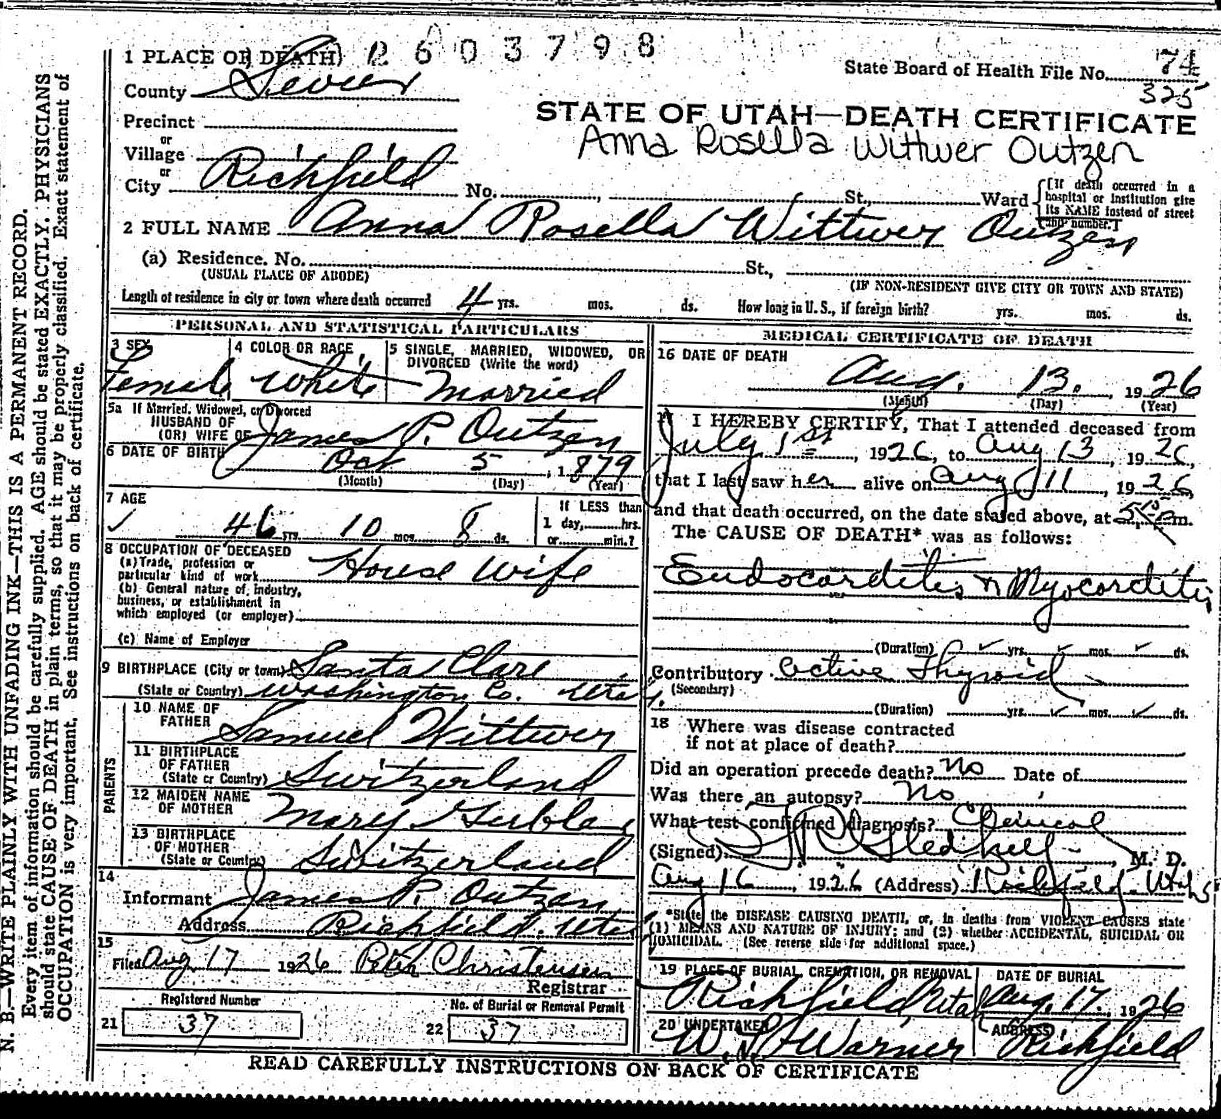 N. B.—WRITE PLAINLY WITH UNFADING INK—THIS IS A PERMANENT RECORD.
Every item of information should be carefully supplied. AGE should be stated EXACTLY. PHYSICIANS
should state CAUSE OF DEATH in plain terms, so that it may be properly classified. Exact statement of
OCCUPATION is very important. See instructions on back of certificate.
2603798
1 PLACE OF DEATH
State Board of Health File No. 74
325
County Sevier
STATE OF UTAH—DEATH CERTIFICATE
Precinct
Anna Rosella Wittwer Outzen
or
Village
or
City Richfield No. St., Ward
[If death occurred in a
hospital or institution give
its NAME instead of street
and number.]
2 FULL NAME Anna Rosella Wittwer Outzen
(a) Residence. No. St.,
(USUAL PLACE OF ABODE) (IF NON-RESIDENT GIVE CITY OR TOWN AND STATE)
Length of residence in city or town where death occurred 4 yrs. mos. ds. How long in U. S., if foreign birth? yrs. mos. ds.
PERSONAL AND STATISTICAL PARTICULARS
3 SEX
Female
4 COLOR OR RACE
White
5 SINGLE, MARRIED, WIDOWED, OR
DIVORCED (Write the word)
Married
5a If Married, Widowed, or Divorced
HUSBAND OF
(OR) WIFE OF James P. Outzen
6 DATE OF BIRTH Oct 5, 1879
(Month) (Day) (Year)
7 AGE
46 yrs. 10 mos. 8 ds.
If LESS than
1 day, hrs.
or min.?
8 OCCUPATION OF DECEASED
(a) Trade, profession or
particular kind of work House wife
(b) General nature of industry,
business, or establishment in
which employed (or employer)
(c) Name of Employer
9 BIRTHPLACE (City or town) Santa Clara
(State or Country) Washington Co. Utah
PARENTS
10 NAME OF
FATHER Samuel Wittwer
11 BIRTHPLACE
OF FATHER
(State or Country) Switzerland
12 MAIDEN NAME
OF MOTHER Mary
13 BIRTHPLACE
OF MOTHER
(State or Country) Switzerland
14
Informant James P. Outzen
Address Richfield, Utah
15
Filed Aug 17 1926 Peter Christensen
Registrar
Registered Number
21 37
No. of Burial or Removal Permit
22 37
MEDICAL CERTIFICATE OF DEATH
16 DATE OF DEATH
Aug. 13. 1926
(Month) (Day) (Year)
17 I HEREBY CERTIFY, That I attended deceased from
July 1st, 1926, to Aug 13, 1926,
that I last saw her alive on Aug 11, 1926
and that death occurred, on the date stated above, at m.
The CAUSE OF DEATH* was as follows:
Endocarditis & Myocarditis
(Duration) yrs. mos. ds.
Contributory Active Thyroid
(Secondary)
(Duration) yrs. mos. ds.
18 Where was disease contracted
if not at place of death?
Did an operation precede death? No Date of
Was there an autopsy? No
What test confirmed diagnosis? Clinical
(Signed) M. D.
Aug 16, 1926 (Address) Richfield Utah
*State the DISEASE CAUSING DEATH, or, in deaths from VIOLENT CAUSES state
(1) MEANS AND NATURE OF INJURY; and (2) whether ACCIDENTAL, SUICIDAL OR
HOMICIDAL. (See reverse side for additional space.)
19 PLACE OF BURIAL, CREMATION, OR REMOVAL
Richfield, Utah
DATE OF BURIAL
Aug. 17. 1926
20 UNDERTAKER
Warner
ADDRESS
Richfield
READ CAREFULLY INSTRUCTIONS ON BACK OF CERTIFICATE